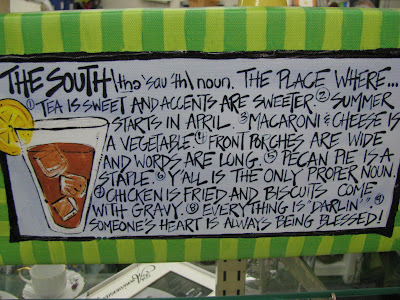 THE SOUTH \thə 'saů 'th\ noun. THE PLACE WHERE...
① TEA IS SWEET AND ACCENTS ARE SWEETER. ② SUMMER
STARTS IN APRIL. ③ MACARONI & CHEESE IS
A VEGETABLE. ④ FRONT PORCHES ARE WIDE
AND WORDS ARE LONG. ⑤ PECAN PIE IS A
STAPLE. ⑥ Y'ALL IS THE ONLY PROPER NOUN.
⑦ CHICKEN IS FRIED AND BISCUITS COME
WITH GRAVY. ⑧ EVERYTHING IS "DARLIN'" ⑨
SOMEONE'S HEART IS ALWAYS BEING BLESSED!